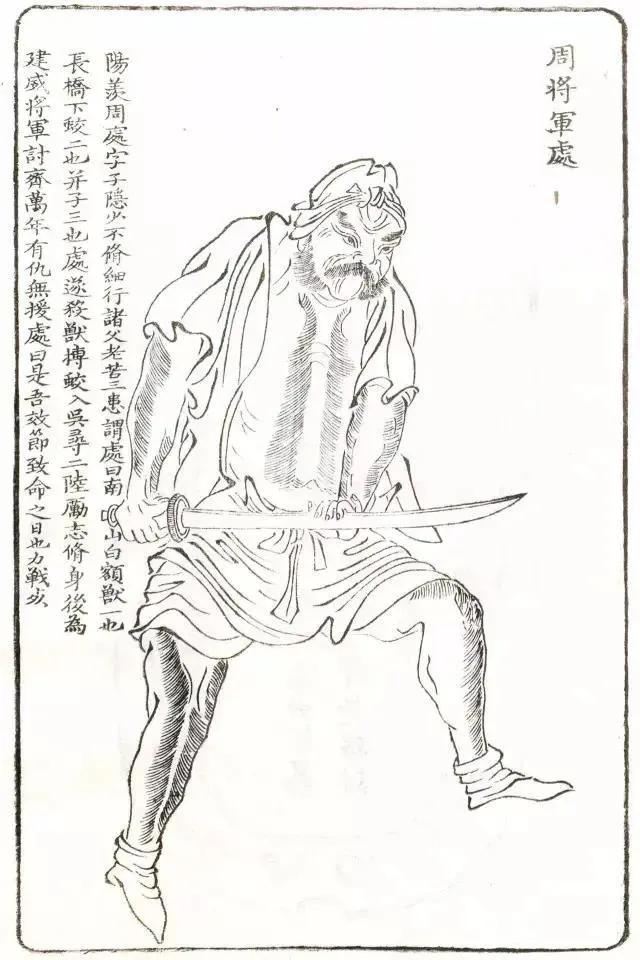 周將軍處
陽羨周處字子隱少不脩細行諸父老苦三患謂處曰南山白額獸一也
長橋下蛟二也并子三也處遂殺獸搏蛟入吳尋二陸勵志脩身後為
建威將軍討齊萬年有仇無援處曰是吾效節致命之日也力戰歿